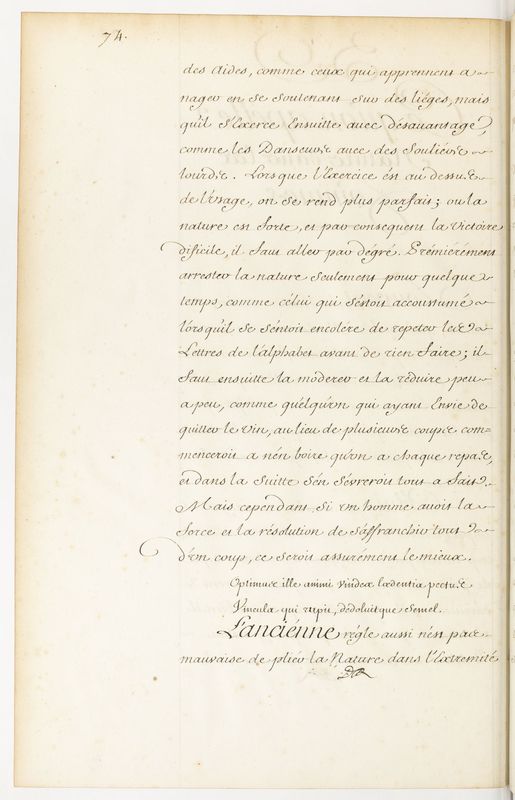 74.
des Aides, comme ceux qui apprennent a
nager en se soutenant sur des liéges, mais
qu'il s'Exerce Ensuitte avec désavantage,
comme les Danseurs avec des Souliers
lourds. Lorsque l'Exercice én au dessus
de l'usage, on se rend plus parfait; ou la
nature en forte, et par consequent la Victoire
dificile, il faut aller par dégré. Prémiérément
arrester la nature seulement pour quelque
temps, comme célui qui s'éstoit accoustumé
lórsqu'il se séntoit encolere de repeter les
Lettres de l'alphabet avant de rien faire; il
faut ensuitte la moderer et la réduire peu
a peu, comme quélqu'vn qui ayant Envie de
quitter le vin, au lieu de plusieurs coups com=
menceroit a n'én boire qu'vn a chaque repas,
et dans la Suitte s'én sévreroit tout a fait.
Mais cependant, si vn homme avoit la
force et la résolution de s'affranchir tout
d'vn coup, ce seroit assurément le mieux.
Optimus ille animi vindex lædentia pectus
Vincula qui rupit, dédoluitque semel.
L'anciénne régle aussi n'est pas
mauvaise de plier la Nature dans l'Extremité